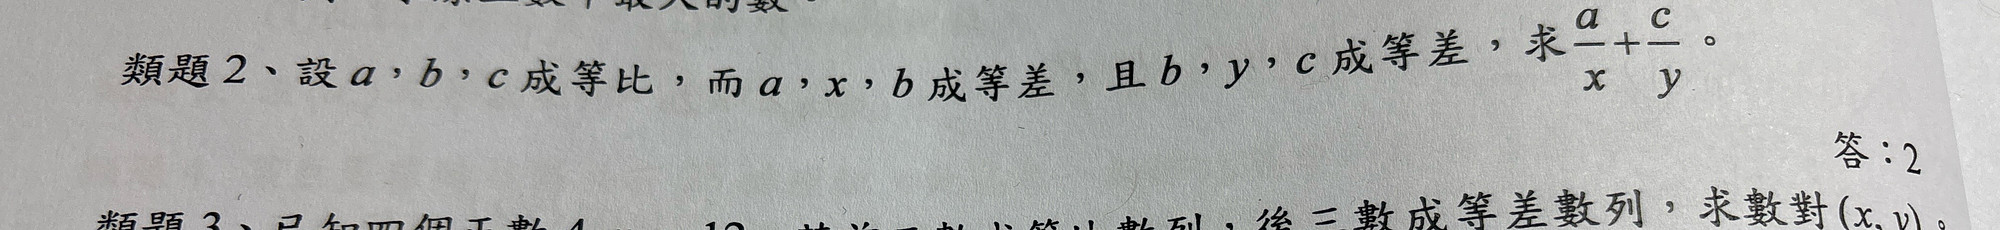 最大的數。
類題2、設a,b,c成等比,而a,x,b成等差,且b,y,c成等差,求a/x+c/y。
答:2
類題3、已知四個正數4 12 後三數成等差數列,求數對(x, y)。